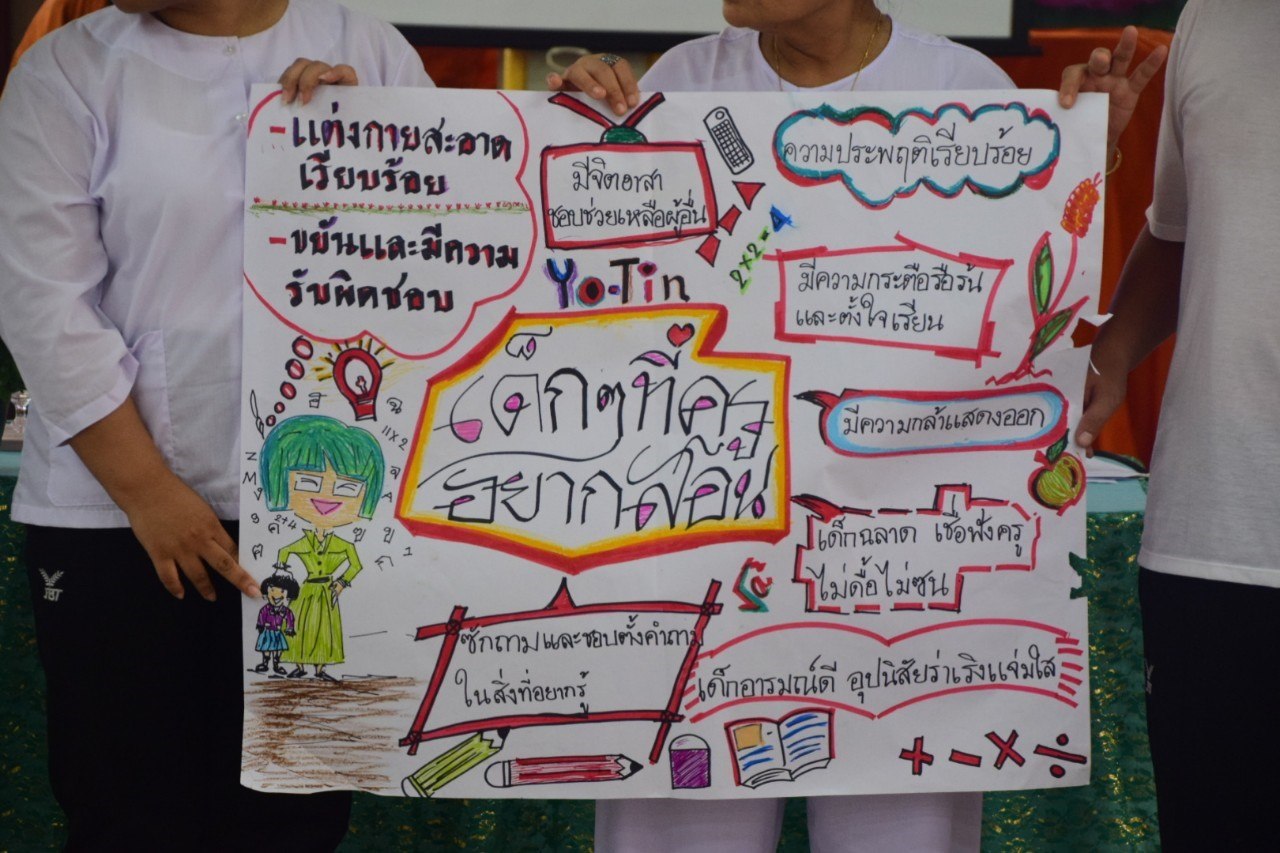 - แต่งกายสะอาด
เรียบร้อย
- ขยันและมีความ
รับผิดชอบ
มีจิตอาสา
ชอบช่วยเหลือผู้อื่น
ความประพฤติเรียบร้อย
2×2=4
Yo-Tin
มีความกระตือรือร้น
และตั้งใจเรียน
เด็กๆที่ครู
อยากสอน
มีความกล้าแสดงออก
เด็กฉลาด เชื่อฟังครู
ไม่ดื้อไม่ซน
ซักถามและชอบตั้งคำถาม
ในสิ่งที่อยากรู้
เด็กอารมณ์ดี อุปนิสัยร่าเริงแจ่มใส
+ - × ÷
2+4
11×2
JBT